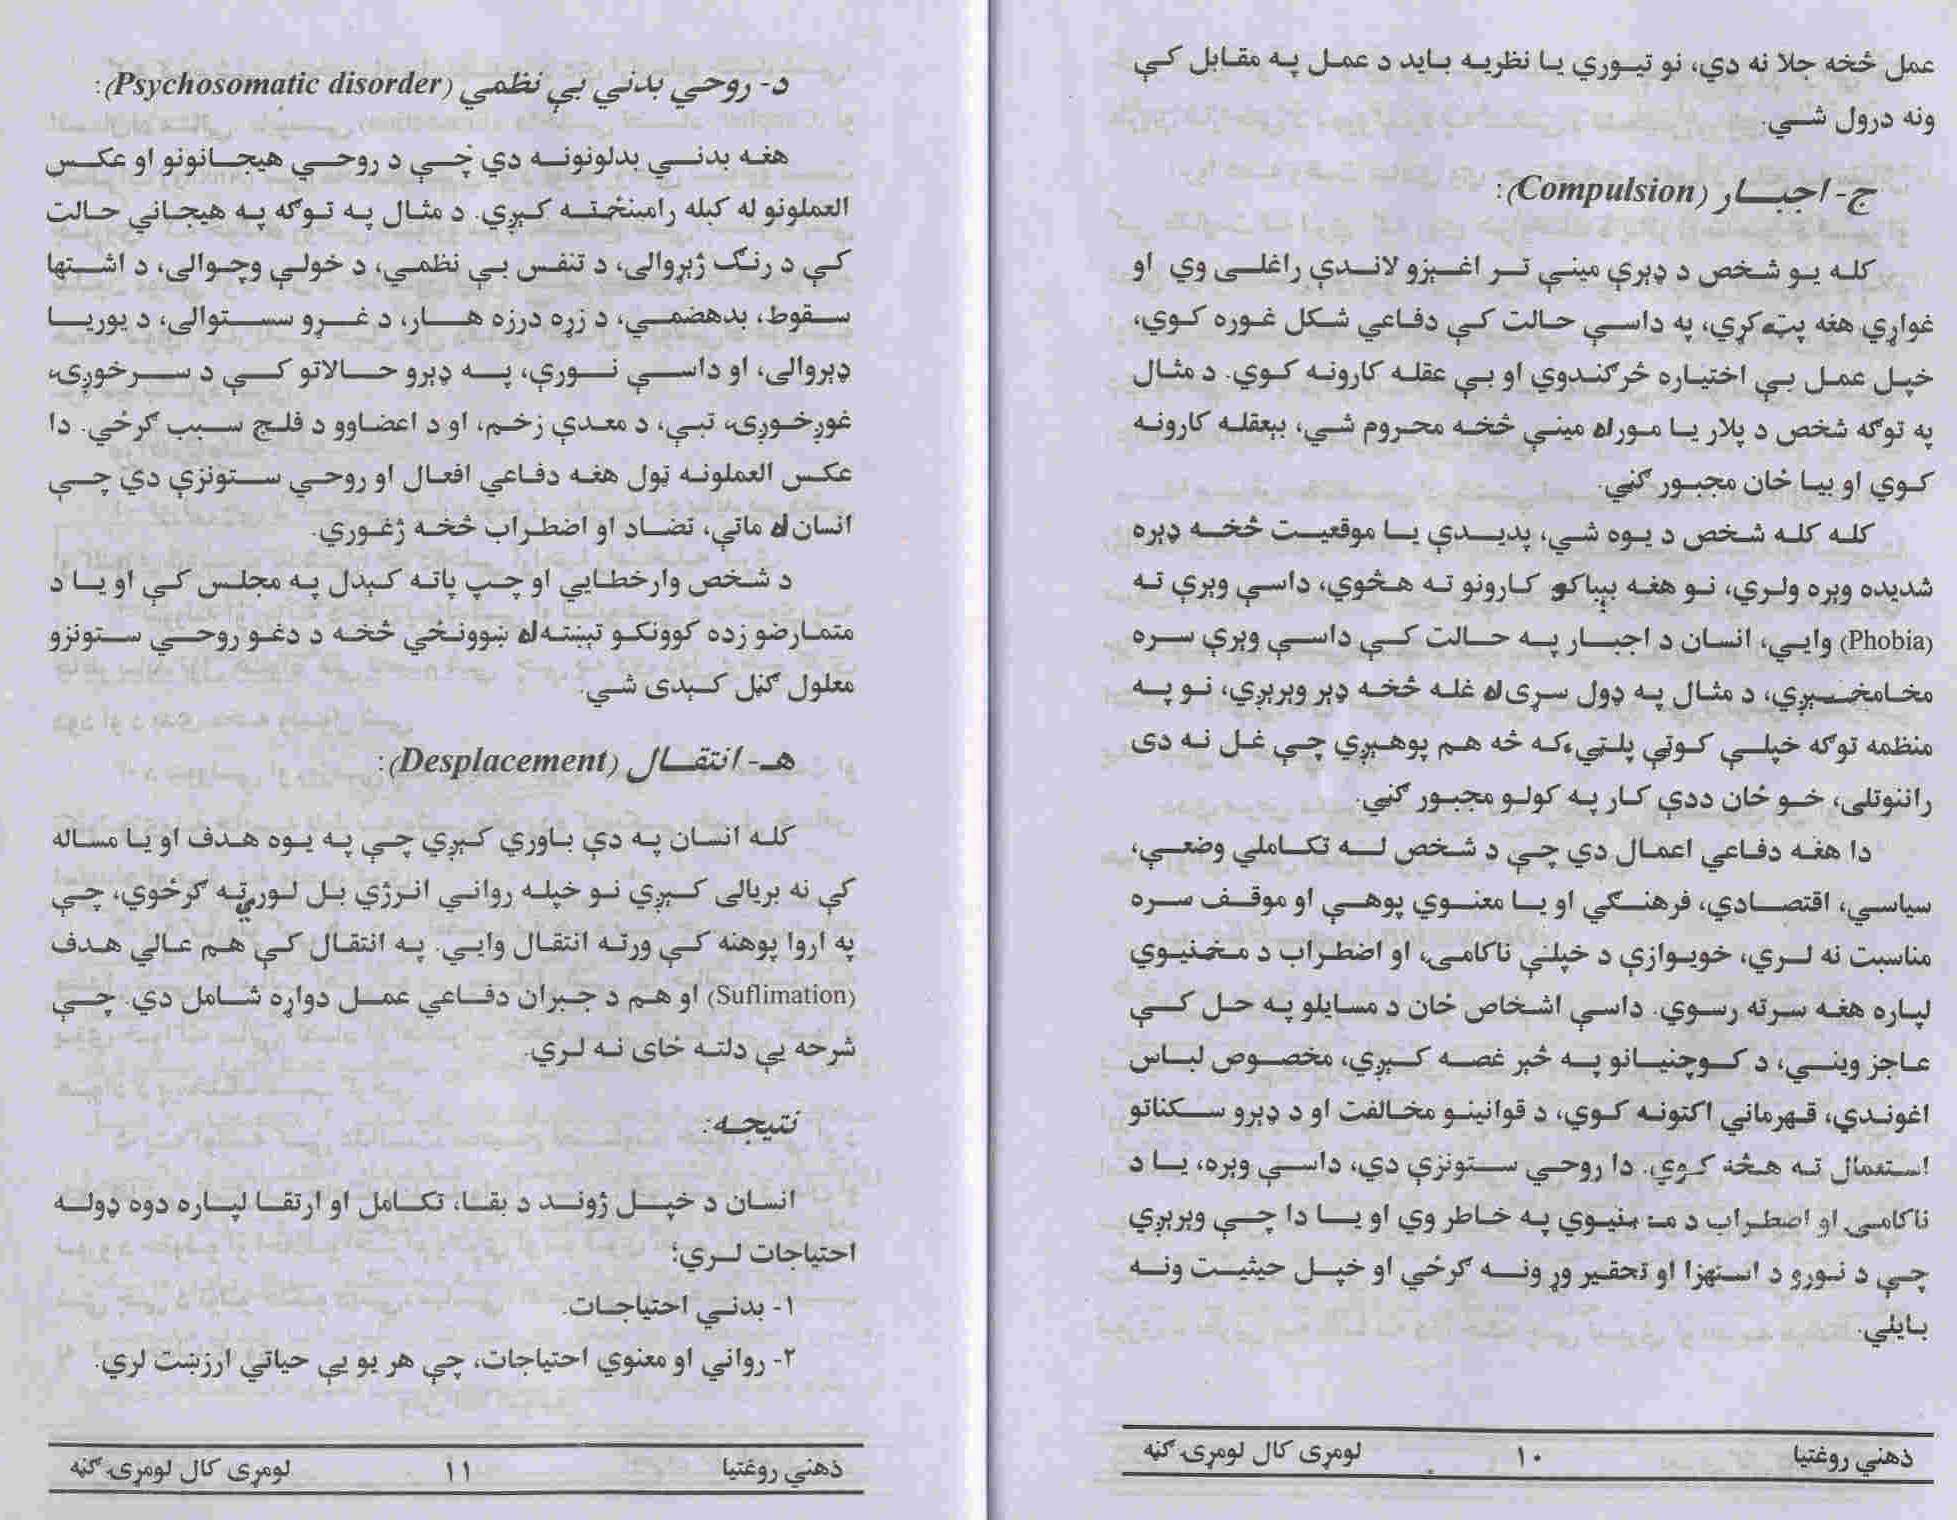 عمل څخه جلا نه دي، نو تيوري يا نظريه بايد د عمل په مقابل کې
ونه درول شي.
ج- اجبار (Compulsion):
کله يو شخص د ډېرې مينې تر اغېزو لاندې راغلى وي او
غواړي هغه پټه کړي، په داسې حالت کې دفاعي شکل غوره کوي،
خپل عمل بې اختياره څرګندوي او بې عقله کارونه کوي. د مثال
په توګه شخص د پلار يا مور له مينې څخه محروم شي، بېعقله کارونه
کوي او بيا ځان مجبور ګڼي.
کله کله شخص د يوه شي، پديدې يا موقعيت څخه ډېره
شديده وېره ولري، نو هغه بېباکو کارونو ته هڅوي، داسې وېرې ته
(Phobia) وايي، انسان د اجبار په حالت کې داسې وېرې سره
مخامخېږي، د مثال په ډول سړى له غله څخه ډېر وېرېږي، نو په
منظمه توګه خپلې کوټې پلټي، که څه هم پوهېږي چې غل نه دى
راننوتلى، خو ځان ددې کار په کولو مجبور ګڼي.
دا هغه دفاعي اعمال دي چې د شخص له تکاملي وضعې،
سياسي، اقتصادي، فرهنګي او يا معنوي پوهې او موقف سره
مناسبت نه لري، خويوازې د خپلې ناکامۍ، او اضطراب د مخنيوي
لپاره هغه سرته رسوي. داسې اشخاص ځان د مسايلو په حل کې
عاجز ويني، د کوچنيانو په څېر غصه کېږي، مخصوص لباس
اغوندي، قهرماني اکتونه کوي، د قوانينو مخالفت او د ډېرو سکناتو
استعمال ته هڅه کوي. دا روحي ستونزې دي، داسې وېره، يا د
ناکامۍ او اضطراب د مخنيوي په خاطر وي او يا دا چې وېرېږي
چې د نورو د استهزا او تحقير وړ ونه ګرځي او خپل حيثيت ونه
بايلي.
ذهني روغتيا ١٠ لومړى کال لومړۍ ګڼه
د- روحي بدني بې نظمي (Psychosomatic disorder):
هغه بدني بدلونونه دي چې د روحي هيجانونو او عکس
العملونو له کبله رامينځته کېږي. د مثال په توګه په هيجاني حالت
کې د رنګ ژېړوالى، د تنفس بې نظمي، د خولې وچوالى، د اشتها
سقوط، بدهضمي، د زړه درزه هار، د غړو سستوالى، د يوريا
ډېروالى، او داسې نورې، په ډېرو حالاتو کې د سرخوږۍ،
غوږخوږۍ، تبې، د معدې زخم، او د اعضاوو د فلج سبب ګرځي. دا
عکس العملونه ټول هغه دفاعي افعال او روحي ستونزې دي چې
انسان له ماتې، تضاد او اضطراب څخه ژغوري.
د شخص وارخطايي او چپ پاته کېدل په مجلس کې او يا د
متمارضو زده کوونکو تېښته له ښوونځي څخه د دغو روحي ستونزو
معلول ګڼل کېدى شي.
هـ- انتقال (Desplacement):
کله انسان په دې باوري کېږي چې په يوه هدف او يا مساله
کې نه بريالى کېږي نو خپله رواني انرژي بل لورته ګرځوي، چې
په اروا پوهنه کې ورته انتقال وايي. په انتقال کې هم عالي هدف
(Suflimation) او هم د جبران دفاعي عمل دواړه شامل دي. چې
شرحه يې دلته ځاى نه لري.
نتيجه:
انسان د خپل ژوند د بقا، تکامل او ارتقا لپاره دوه ډوله
احتياجات لري؛
١- بدني احتياجات.
٢- رواني او معنوي احتياجات، چې هر يو يې حياتي ارزښت لري.
ذهني روغتيا ١١ لومړى کال لومړۍ ګڼه